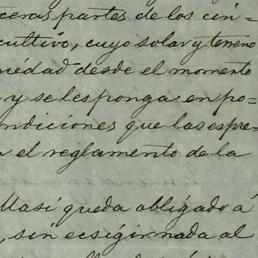 ceras partes de los cin=
cultivo, cuyo solar y terreno
niedad desde el momento
y se les ponga en po=
ndiciones que las espre=
n el reglamento de la
Masi queda obligado á
, sin ecsigir nada al